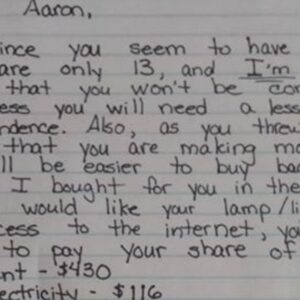 Aaron,
ince you seem to have
are only 13, and I'm
that you won't be con
ess you will need a less
ndence. Also, as you threw
that you are making mo
ll be easier to buy bac
I bought for you in the
would like your lamp/li
cess to the internet, you
to pay your share of
nt - $430
ectricity - $116